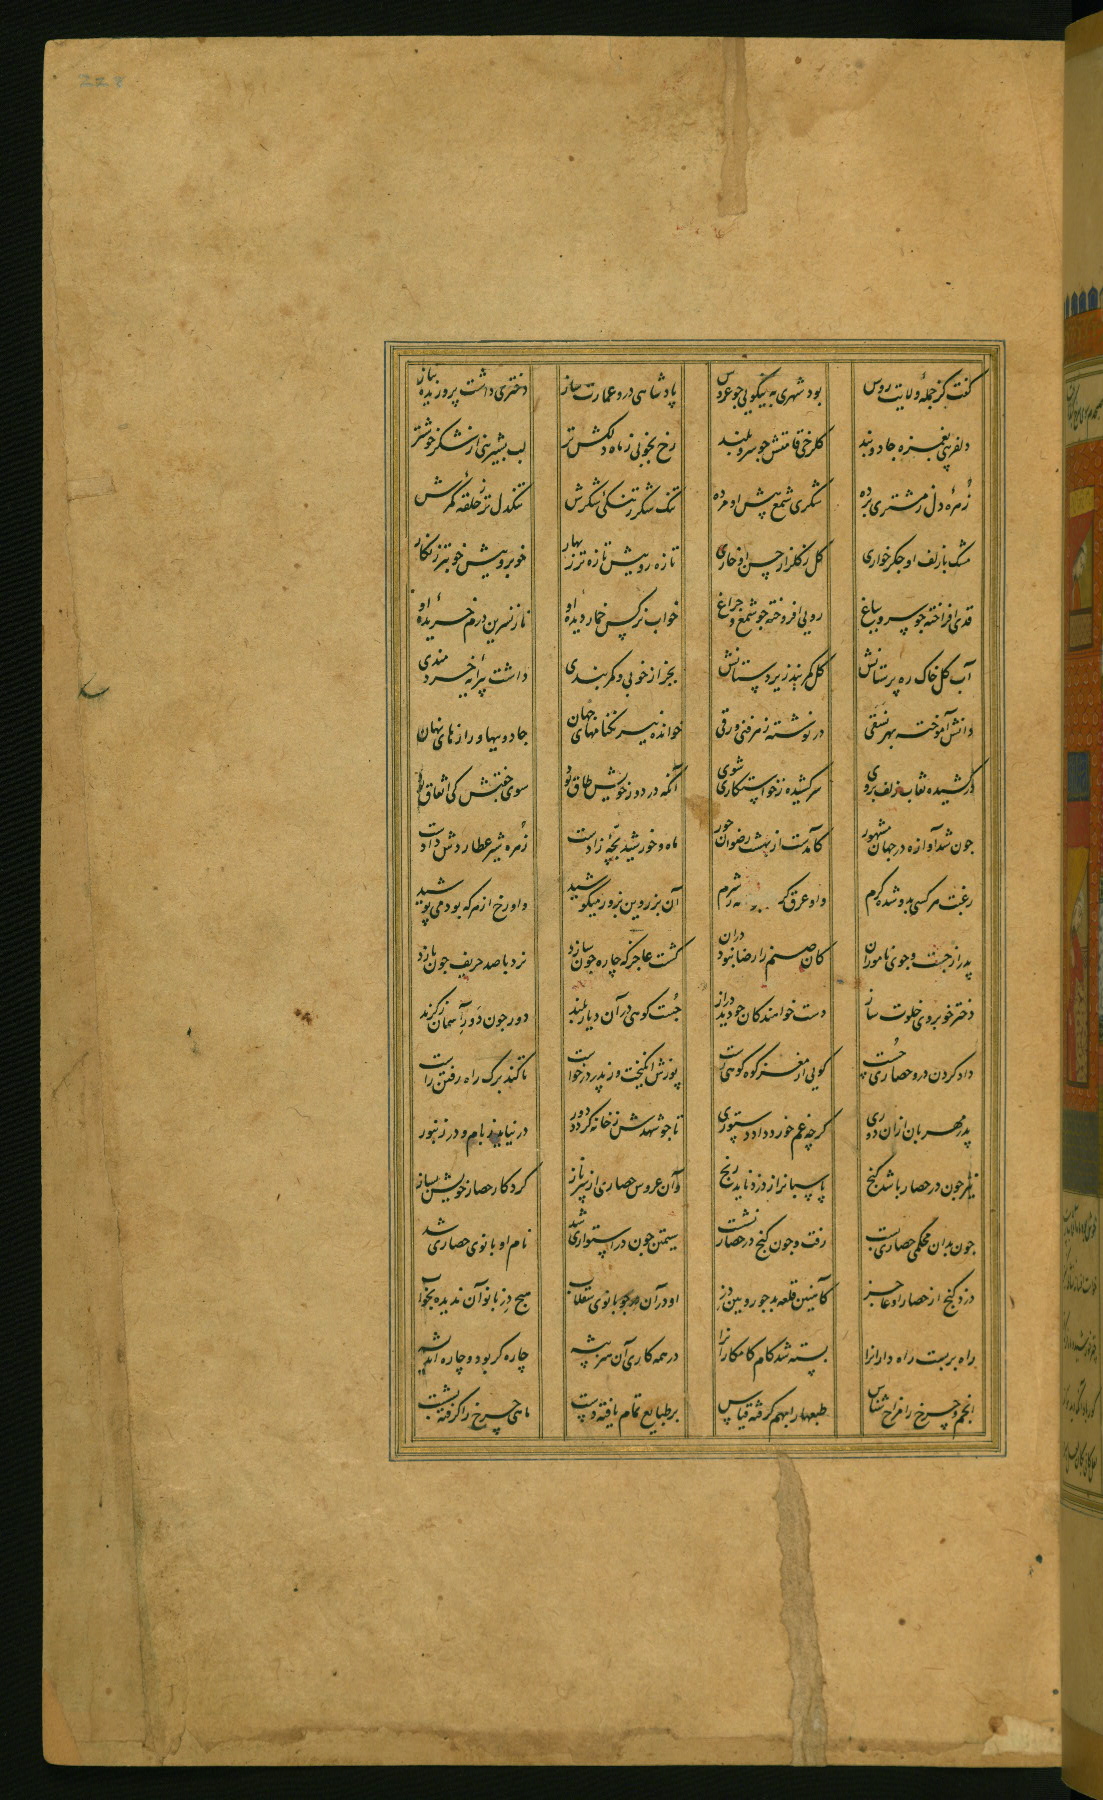 گفت کز جمله ولایت روس بود شهری به نیکویی جو عروس پادشاهی درو عمارت ساز دختری داشت پروریده بناز
دلفریبی بغمزه جادو بند گلرخی قامتش جو سرو بلند رخ بخوبی ز ماه دلکش تر لب بشیرینی از شکر خوشتر
زهره دل ز مشتری برده شکری شمع پیش او مرده تنگ شکر ز تنگی شکرش تنگدل تر ز حلقه کمرش
مشک با زلف او جکرخواری گل ز گلزار حسن او خاری تازه رویش تازه تر ز بهار خوبرویش خوبتر ز نگار
قدی افراخته جو سرو بباغ رویی افروخته جو شمع و جراغ خواب نرگس خمار دیده او ناز نسرین درم خریده او
آب گل خاک ره پرستانش گل کمر بند زیر دستانش بجز از خوبی و کمر بندی داشت پیرایه خردمندی
دانش آموخته بهر نسقی در نوشته ز هر فنی ورقی خوانده نیرنگ نامهای جهان جادوییها و رازهای نهان
درکشیده نقاب زلف بروی سرکشیده ز خواستکاری شوی آنکه در دور خویش طاق بود سوی جفتش کی اتفاق بود
جون شد آوازه در جهان مشهور کامدست از بهشت رضوان حور ماه و خورشید بچه زادست زهره شیر عطاردش دادست
رغبت هر کسی بدو شد گرم داو عرق کر شرم آن بزر وین بزور میکوشید و او رخ از هر که بود می پوشید
پدر از جست و جوی ناموران کان صنم را رضا نبود دران گشت عاجز که چاره جون سازد نرد با صد حریف جون بازد
دختر خوبروی خلوت ساز دست خواهندکان جو دید دراز جست کوهی در آن دیار بلند دور جون دور آسمان ز گزند
داد کردن درو حصاری جست گویی از مغز کوه کوهی رست پوزش انگیخت وز پدر درخواست تا کند برک راه رفتن راست
پدر مهربان ازان دوری گرچه غم خورد داد دستوری تا جو شهدش ز خانه گردد دور در نیاید ز بام و در زنبور
نیز جون در حصار باشد گنج پاسبانرا ز دزد ناید رنج وان عروس حصاری از سر ناز کرد کار حصار خویش بساز
جون بدان محکمی حصاری بست رفت و جون گنج در حصار نشست سیمتن جون در استواری شد نام او بانوی حصاری شد
دزد گنج از حصار او عاجز کآهنین قلعه بد جو رویین دز او در آن دز جو بانوی سقلاب هیچ دز بانو آن ندیده بخواب
راه بربست راه دارانرا بسته شد کام کامکارانرا در همه کاری آن هنر پیشه چاره گر بود و چاره اندیشه
انجم و چرخ را مزاج شناس طبعها را بهم گرفته قیاس بر طبایع تمام یافته دست ماهی چرخ را گرفته بشست